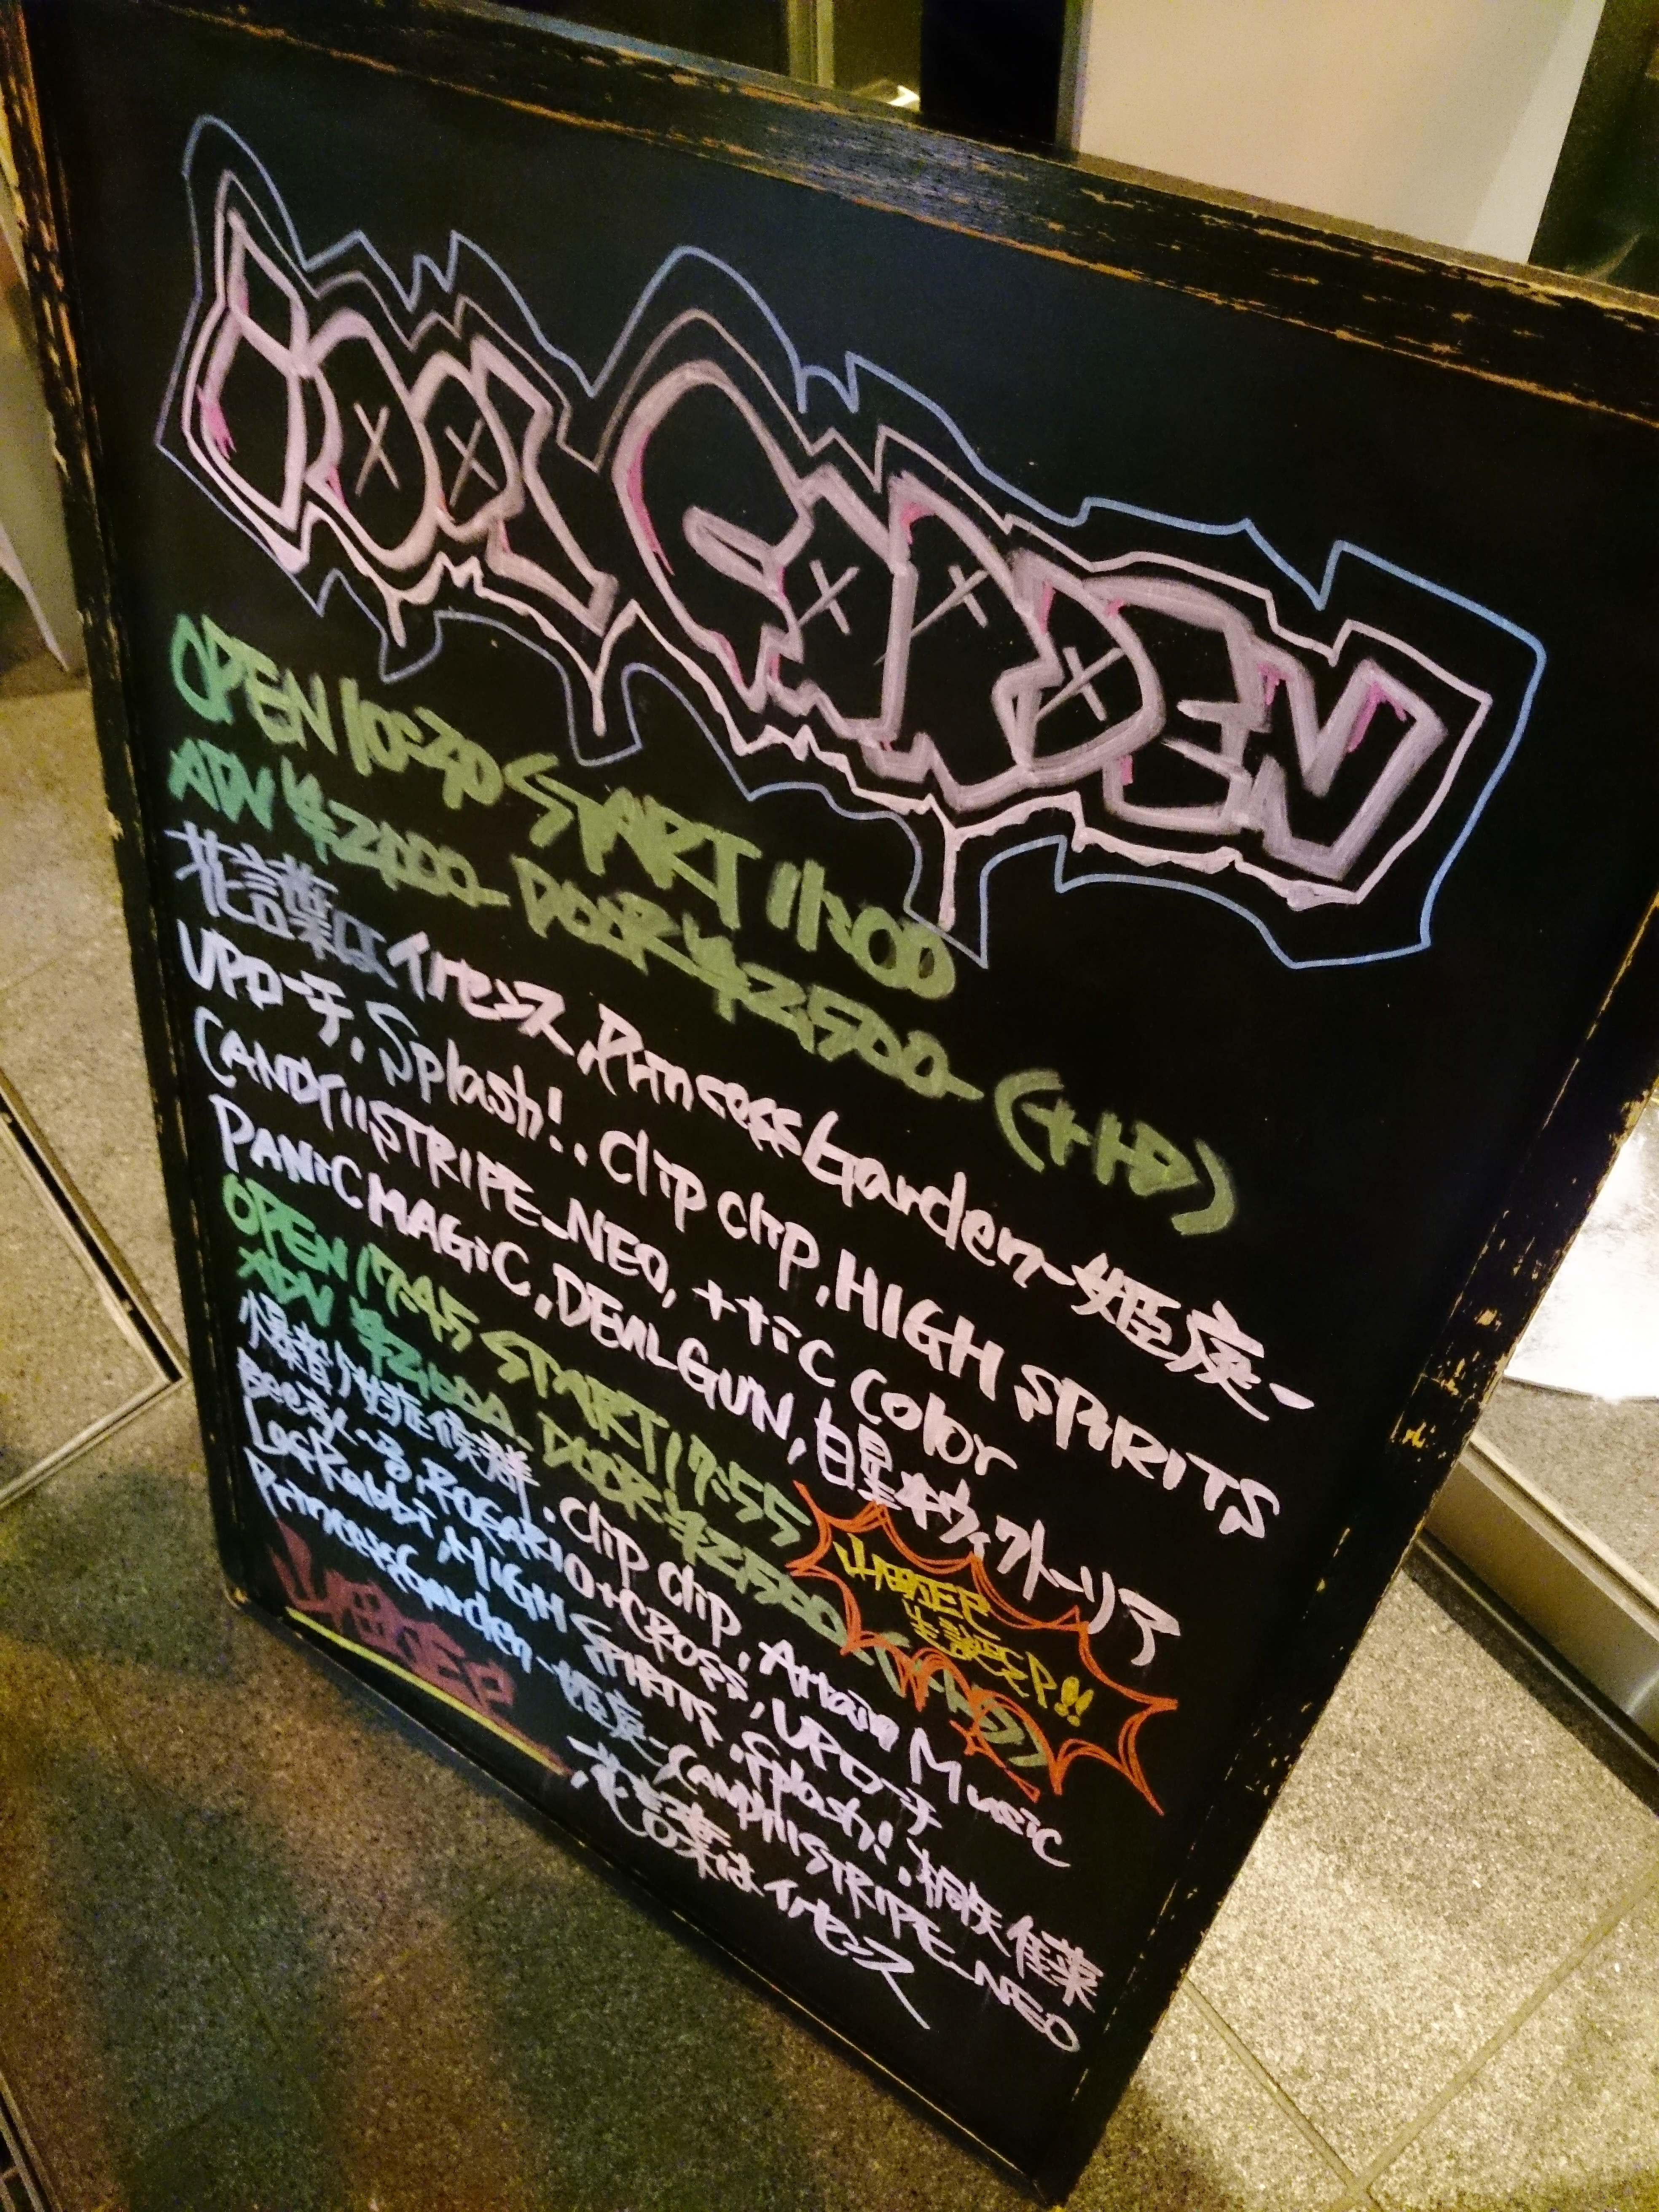 iDOL GARDEN
OPEN 10:30 START 11:00
ADV ¥2000- DOOR ¥2500- (+1D)
花言葉はイノセンス, Princess Garden-姫庭-
UPローチ, Splash!, clip clip, HIGH SPiRITS
CANDY11STRIPE_NEO, ++tiC Color
PANiC MAGiC, DEViL GUN, 白星★ヴィクトーリア
OPEN 17:45 START 17:55
ADV ¥2000 DOOR ¥2500 (+1D)
生誕SP!!
爆音少女症候群, clip clip, Artain Music
ROSARIO+CROSS, UPローチ
HIGH SPiRITS, Splash!
Princess Garden-姫庭- CANDY11STRIPE_NEO
花言葉はイノセンス